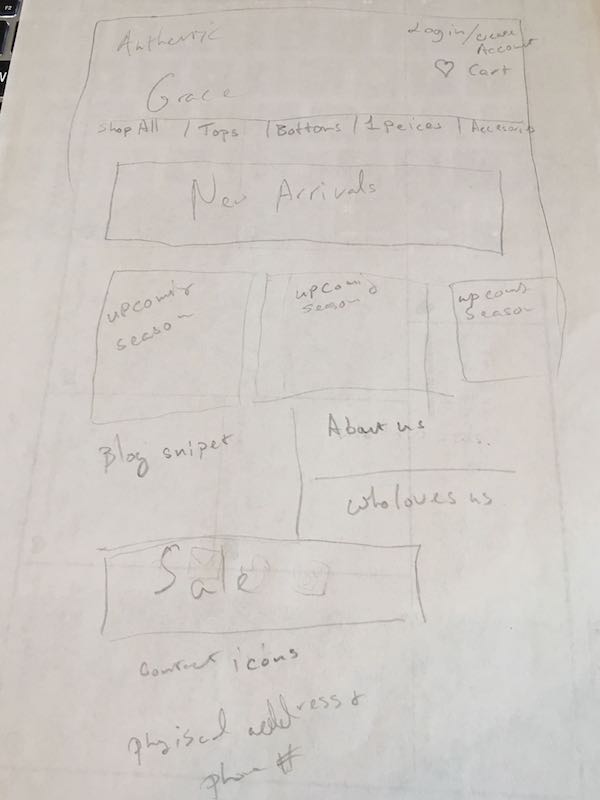 Authentic
Grace
Login/create
Account
♡ Cart
Shop All / Tops / Bottoms / 1 peices / Accesories
New Arrivals
upcoming
season
upcoming
season
upcoming
season
Blog snipet
About us
who loves us
Sale
Contact icons
physical address &
phone #